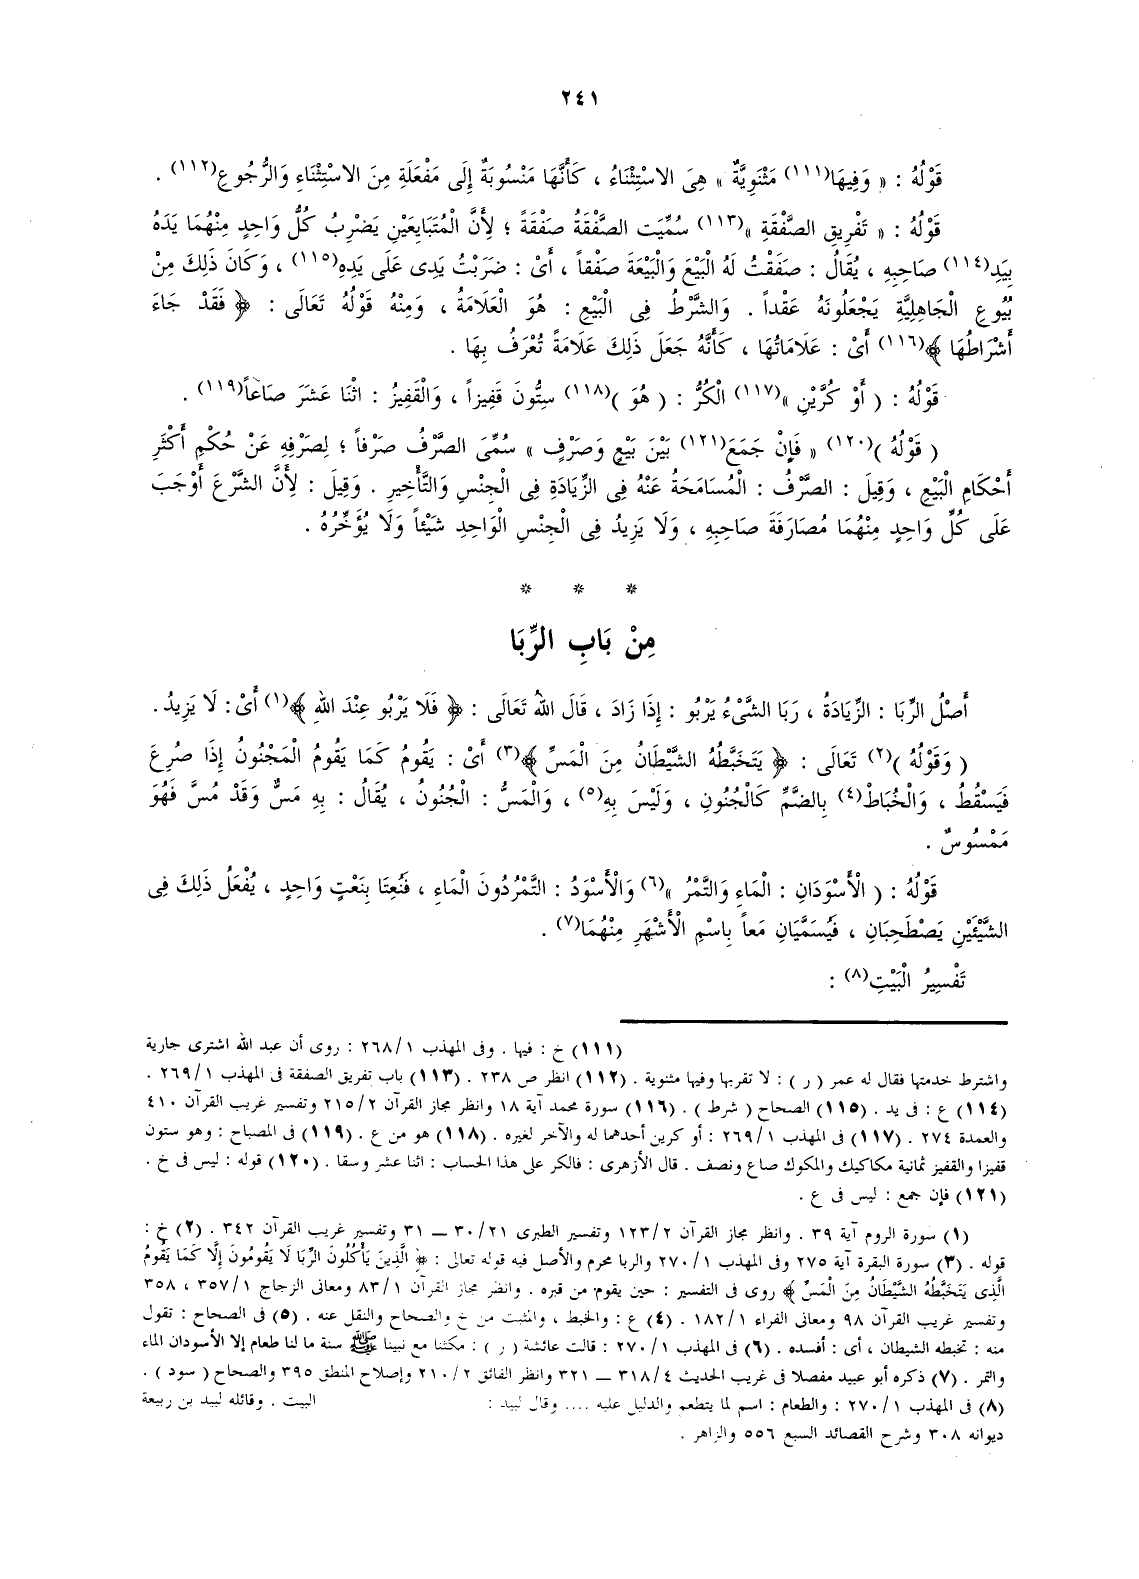 ٢٤١
قَوْلُهُ : « وَفِيهَا(١١١) مَثْنَوِيَّةٌ » هِىَ الاسْتِثْنَاءُ ، كَأَنَّهَا مَنْسُوبَةٌ إِلَى مَفْعَلَةِ مِنَ الاسْتِثْنَاءِ وَالرُّجُوعِ(١١٢) .
قَوْلُهُ : « تَفْرِيقِ الصَّفْقَةِ »(١١٣) سُمِّيَت الصَّفْقَةُ صَفْقَةً ؛ لِأَنَّ الْمُتَبَايَعَيْنِ يَضْرِبُ كُلُّ وَاحِدٍ مِنْهُمَا يَدَهُ
بِيَدِ(١١٤) صَاحِبِهِ ، يُقَالُ : صَفَقْتُ لَهُ الْبَيْعَ وَالْبَيْعَةَ صَفْقاً ، أَىْ : ضَرَبْتُ يَدِى عَلَى يَدِهِ(١١٥) ، وَكَانَ ذَلِكَ مِنْ
بُيُوعِ الْجَاهِلِيَّةِ يَجْعَلُونَهُ عَقْداً . وَالشَّرْطُ فِى الْبَيْعِ : هُوَ الْعَلَامَةُ ، وَمِنْهُ قَوْلُهُ تَعَالَى : ﴿ فَقَدْ جَاءَ
أَشْرَاطُهَا ﴾(١١٦) أَىْ : عَلَامَاتُهَا ، كَأَنَّهُ جَعَلَ ذَلِكَ عَلَامَةً تُعْرَفُ بِهَا .
قَوْلُهُ : ( أَوْ كُرَّيْنِ »(١١٧) الْكُرُّ : ( هُوَ )(١١٨) سِتُّونَ قَفِيزاً ، وَالْقَفِيزُ : اثْنَا عَشَرَ صَاعاً(١١٩) .
( قَوْلُهُ )(١٢٠) « فَإِنْ جَمَعَ(١٢١) بَيْنَ بَيْعٍ وَصَرْفٍ » سُمِّىَ الصَّرْفُ صَرْفاً ؛ لِصَرْفِهِ عَنْ حُكْمِ أَكْثَرِ
أَحْكَامِ الْبَيْعِ ، وَقِيلَ : الصَّرْفُ : الْمُسَامَحَةُ عَنْهُ فِى الزِّيَادَةِ فِى الْجِنْسِ وَالتَّأْخِيرِ . وَقِيلَ : لِأَنَّ الشَّرْعَ أَوْجَبَ
عَلَى كُلِّ وَاحِدٍ مِنْهُمَا مُصَارَفَةَ صَاحِبِهِ ، وَلَا يَزِيدُ فِى الْجِنْسِ الْوَاحِدِ شَيْئاً وَلَا يُؤَخِّرُهُ .
* * *
مِنْ بَابِ الرِّبَا
أَصْلُ الرِّبَا : الزِّيَادَةُ ، رَبَا الشَّىْءُ يَرْبُو : إِذَا زَادَ ، قَالَ اللهُ تَعَالَى : ﴿ فَلَا يَرْبُو عِنْدَ اللهِ ﴾(١) أَىْ : لَا يَزِيدُ .
( وَقَوْلُهُ )(٢) تَعَالَى : ﴿ يَتَخَبَّطُهُ الشَّيْطَانُ مِنَ الْمَسِّ ﴾(٣) أَىْ : يَقُومُ كَمَا يَقُومُ الْمَجْنُونُ إِذَا صُرِعَ
فَيَسْقُطُ ، وَالْخُبَاطُ(٤) بِالضَّمِّ كَالْجُنُونِ ، وَلَيْسَ بِهِ(٥) ، وَالْمَسُّ : الْجُنُونُ ، يُقَالُ : بِهِ مَسٌّ وَقَدْ مُسَّ فَهُوَ
مَمْسُوسٌ .
قَوْلُهُ : ( الْأَسْوَدَانِ : الْمَاءِ وَالتَّمْرُ »(٦) وَالْأَسْوَدُ : التَّمْرُ دُونَ الْمَاءِ ، فَنُعِتَا بِنَعْتٍ وَاحِدٍ ، يُفْعَلُ ذَلِكَ فِى
الشَّيْئَيْنِ يَصْطَحِبَانِ ، فَيُسَمَّيَانِ مَعاً بِاسْمِ الْأَشْهَرِ مِنْهُمَا(٧) .
تَفْسِيرُ الْبَيْتِ(٨) :
(١١١) خ : فيها . وفى المهذب ٢٦٨/١ : روى أن عبد الله اشترى جارية
واشترط خدمتها فقال له عمر ( ر ) : لا تقربها وفيها مثنوية . (١١٢) انظر ص ٢٣٨ . (١١٣) باب تفريق الصفقة فى المهذب ٢٦٩/١ .
(١١٤) ع : فى يد . (١١٥) الصحاح ( شرط ) . (١١٦) سورة محمد آية ١٨ وانظر مجاز القرآن ٢١٥/٢ وتفسير غريب القرآن ٤١٠
والعمدة ٢٧٤ . (١١٧) فى المهذب ٢٦٩/١ : أو كرين أحدهما له والآخر لغيره . (١١٨) هو من ع . (١١٩) فى المصباح : وهو ستون
قفيزا والقفيز ثمانية مكاكيك والمكوك صاع ونصف . قال الأزهرى : فالكر على هذا الحساب : اثنا عشر وسقا . (١٢٠) قوله : ليس فى خ .
(١٢١) فإن جمع : ليس فى ع .
(١) سورة الروم آية ٣٩ . وانظر مجاز القرآن ١٢٣/٢ وتفسير الطبرى ٣٠/٢١ ــ ٣١ وتفسير غريب القرآن ٣٤٢ . (٢) خ :
قوله . (٣) سورة البقرة آية ٢٧٥ وفى المهذب ٢٧٠/١ والربا محرم والأصل فيه قوله تعالى : ﴿ الَّذِينَ يَأْكُلُونَ الرِّبَا لَا يَقُومُونَ إِلَّا كَمَا يَقُومُ
الَّذِى يَتَخَبَّطُهُ الشَّيْطَانُ مِنَ الْمَسِّ ﴾ روى فى التفسير : حين يقوم من قبره . وانظر مجاز القرآن ٨٣/١ ومعانى الزجاج ٣٥٧/١ ، ٣٥٨
وتفسير غريب القرآن ٩٨ ومعانى الفراء ١٨٢/١ . (٤) ع : والخبط ، والمثبت من خ والصحاح والنقل عنه . (٥) فى الصحاح : تقول
منه : تخبطه الشيطان ، أى : أفسده . (٦) فى المهذب ٢٧٠/١ : قالت عائشة ( ر ) : مكثنا مع نبينا ﷺ سنة ما لنا طعام إلا الأسودان الماء
والتمر . (٧) ذكره أبو عبيد مفصلا فى غريب الحديث ٣١٨/٤ ــ ٣٢١ وانظر الفائق ٢١٠/٢ وإصلاح المنطق ٣٩٥ والصحاح ( سود ) .
(٨) فى المهذب ٢٧٠/١ : والطعام : اسم لما يتطعم والدليل عليه .... وقال لبيد : البيت . وقائله لبيد بن ربيعة
ديوانه ٣٠٨ وشرح القصائد السبع ٥٥٦ والزاهر .